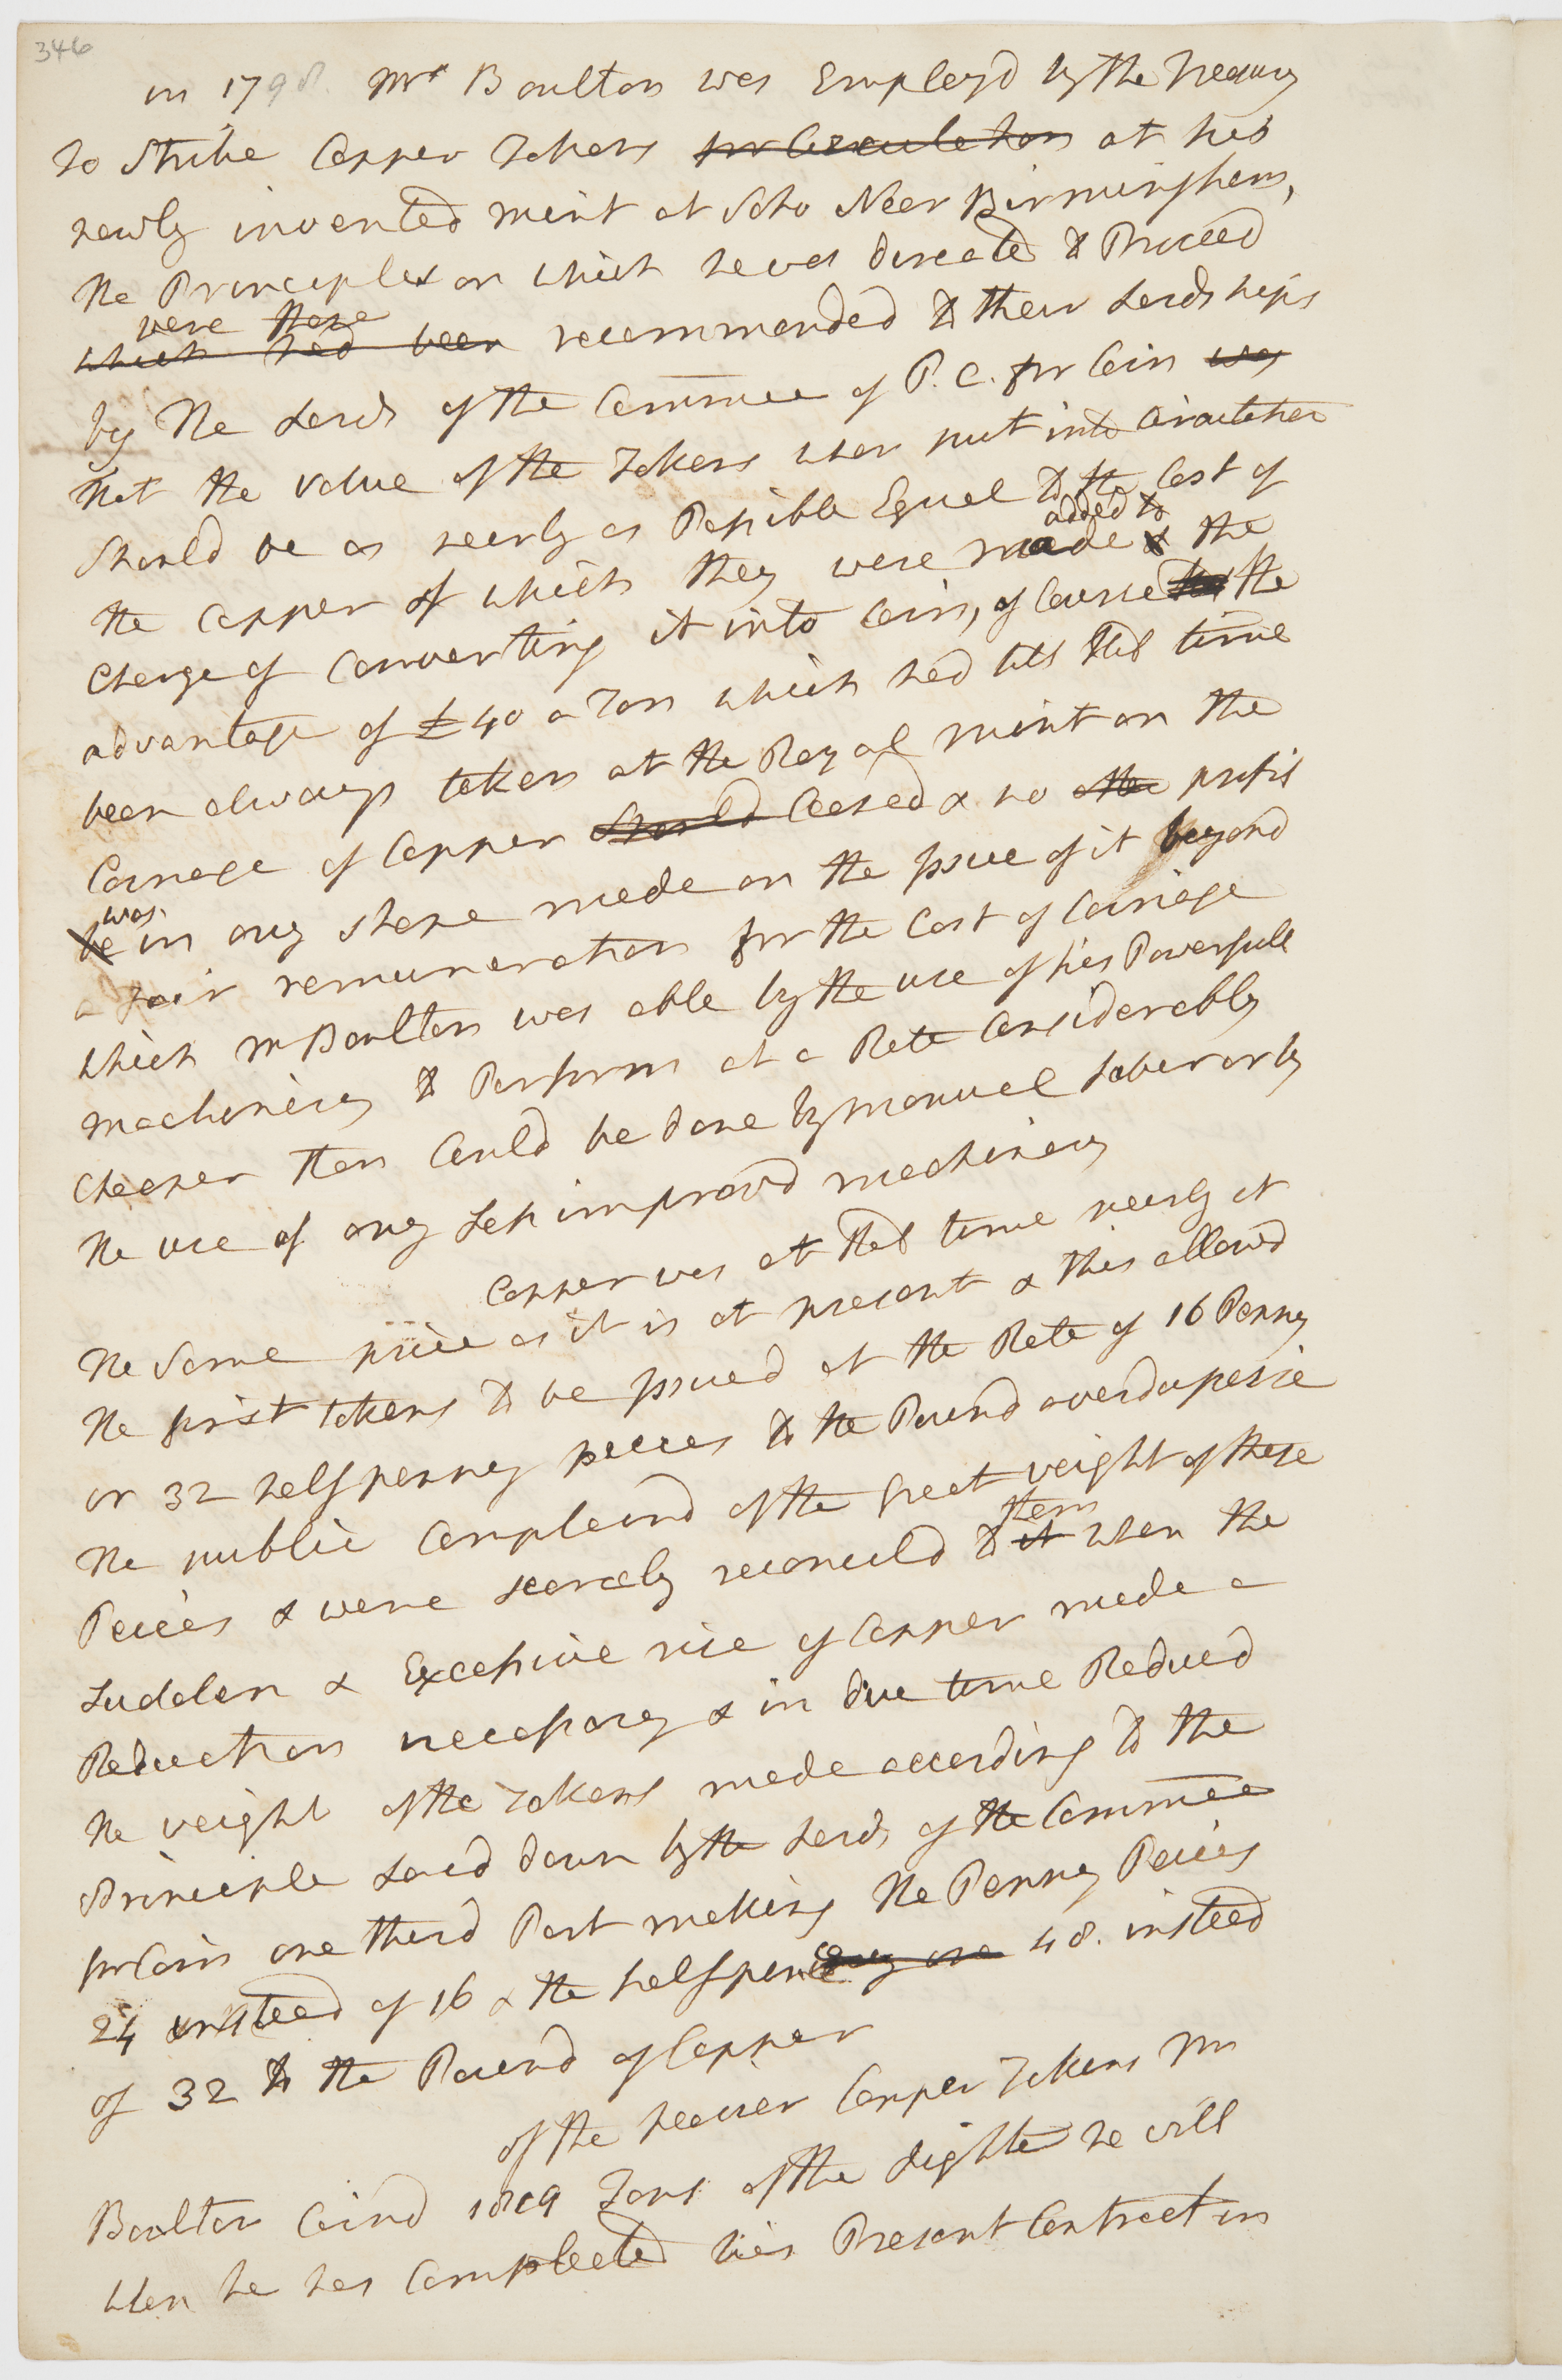 346
in 1798. Mr Boulton was Employd by the Treasury
to Strike Copper Tokens for Circulation at his
newly invented mint at Soho Near Birmingham,
the Principles on which he was directed to Proceed
were those
which had been recommended to their Lordships
by the Lords of the Committee of P.C. for Coin was
that the value of the Tokens when put into Circulation
Should be as nearly as Possible Equal to the Cost of
added to
the Copper of which they were made & the
Charge of Converting it into Coin, of Course the
advantage of £40 a Ton which had till that time
been always taken at the Royal Mint on the
Coinage of Copper Should Ceased & no other profit
was
be in any shape made on the Issue of it beyond
a fair remuneration for the Cost of Coinage
which Mr Boulton was able by the use of his Powerfull
machinery to Perform at a Rate Considerably
Cheaper than Could be done by manuel Labor or by
the use of any Less improvd machinery
Copper was at that time nearly at
the Same price as it is at present & this allowd
the first tokens to be Issued at the Rate of 16 Penny
or 32 halfpenny peeces to the Pound averdupesie
the public Complaind of the Great weight of these
them
Peices & were scarcely reconcild to it when the
Sudden & Excessive rise of Copper made a
Reduction necessary & in due time Reducd
the weight of the Tokens made according to the
Principle Laid down by the Lords of the Committee
for Coin one third Part making the Penny Peices
24 insteed of 16 & the halfpence 48. insteed
of 32 to the Pound of Copper
of the heavier Copper Tokens Mr
Boulton Coind Tons of the Lighter he will
when he has Compleeted his Present Contract in